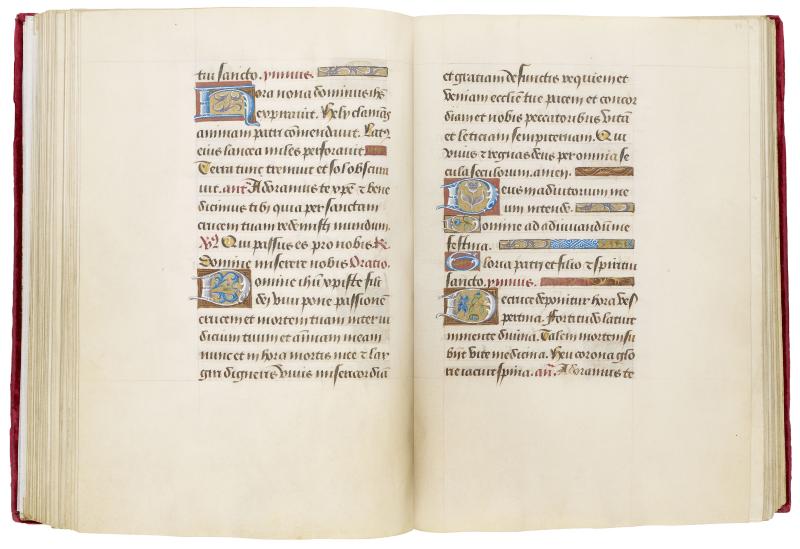 tui sancto. ymnus.
Hora nona dominus ihs
expirauit. Hely clamās
animam patri cōmendauit. Lat9
eius lancea miles perforauit
Terra tunc tremuit et sol obscura
uit. ant Adoramus te xp̄e & bene
dicimus tibi quia per sanctam
crucem tuam redemisti mundum.
Qui passus es pro nobis R.
Domine miserere nobis Oratio.
Domine ihū xp̄iste fili
dei viui pone passionē
crucem et mortem tuam inter iu
dicium tuum et aīmam meam
nunc et in hora mortis mee & lar
giri digneris viuis misericordiā
et gratiam defunctis requiem et
veniam ecclie tue pacem et concor
diam et nobis peccatoribus vitā
et leticiam sempiternam. Qui
viuis & regnas deus per omnia se
cula seculorum. amen.
Deus in adiutorium me
um intende.
Domine ad adiuuandū me
festina.
Gloria patri et filio & spiritui
sancto. ymnus.
De cruce deponitur hora ves
pertina. Fortitudo latuit
in mente diuina. Talem mortem su
biit vite medicina. Heu corona glo
rie iacuit spina. añ. Adoramus te